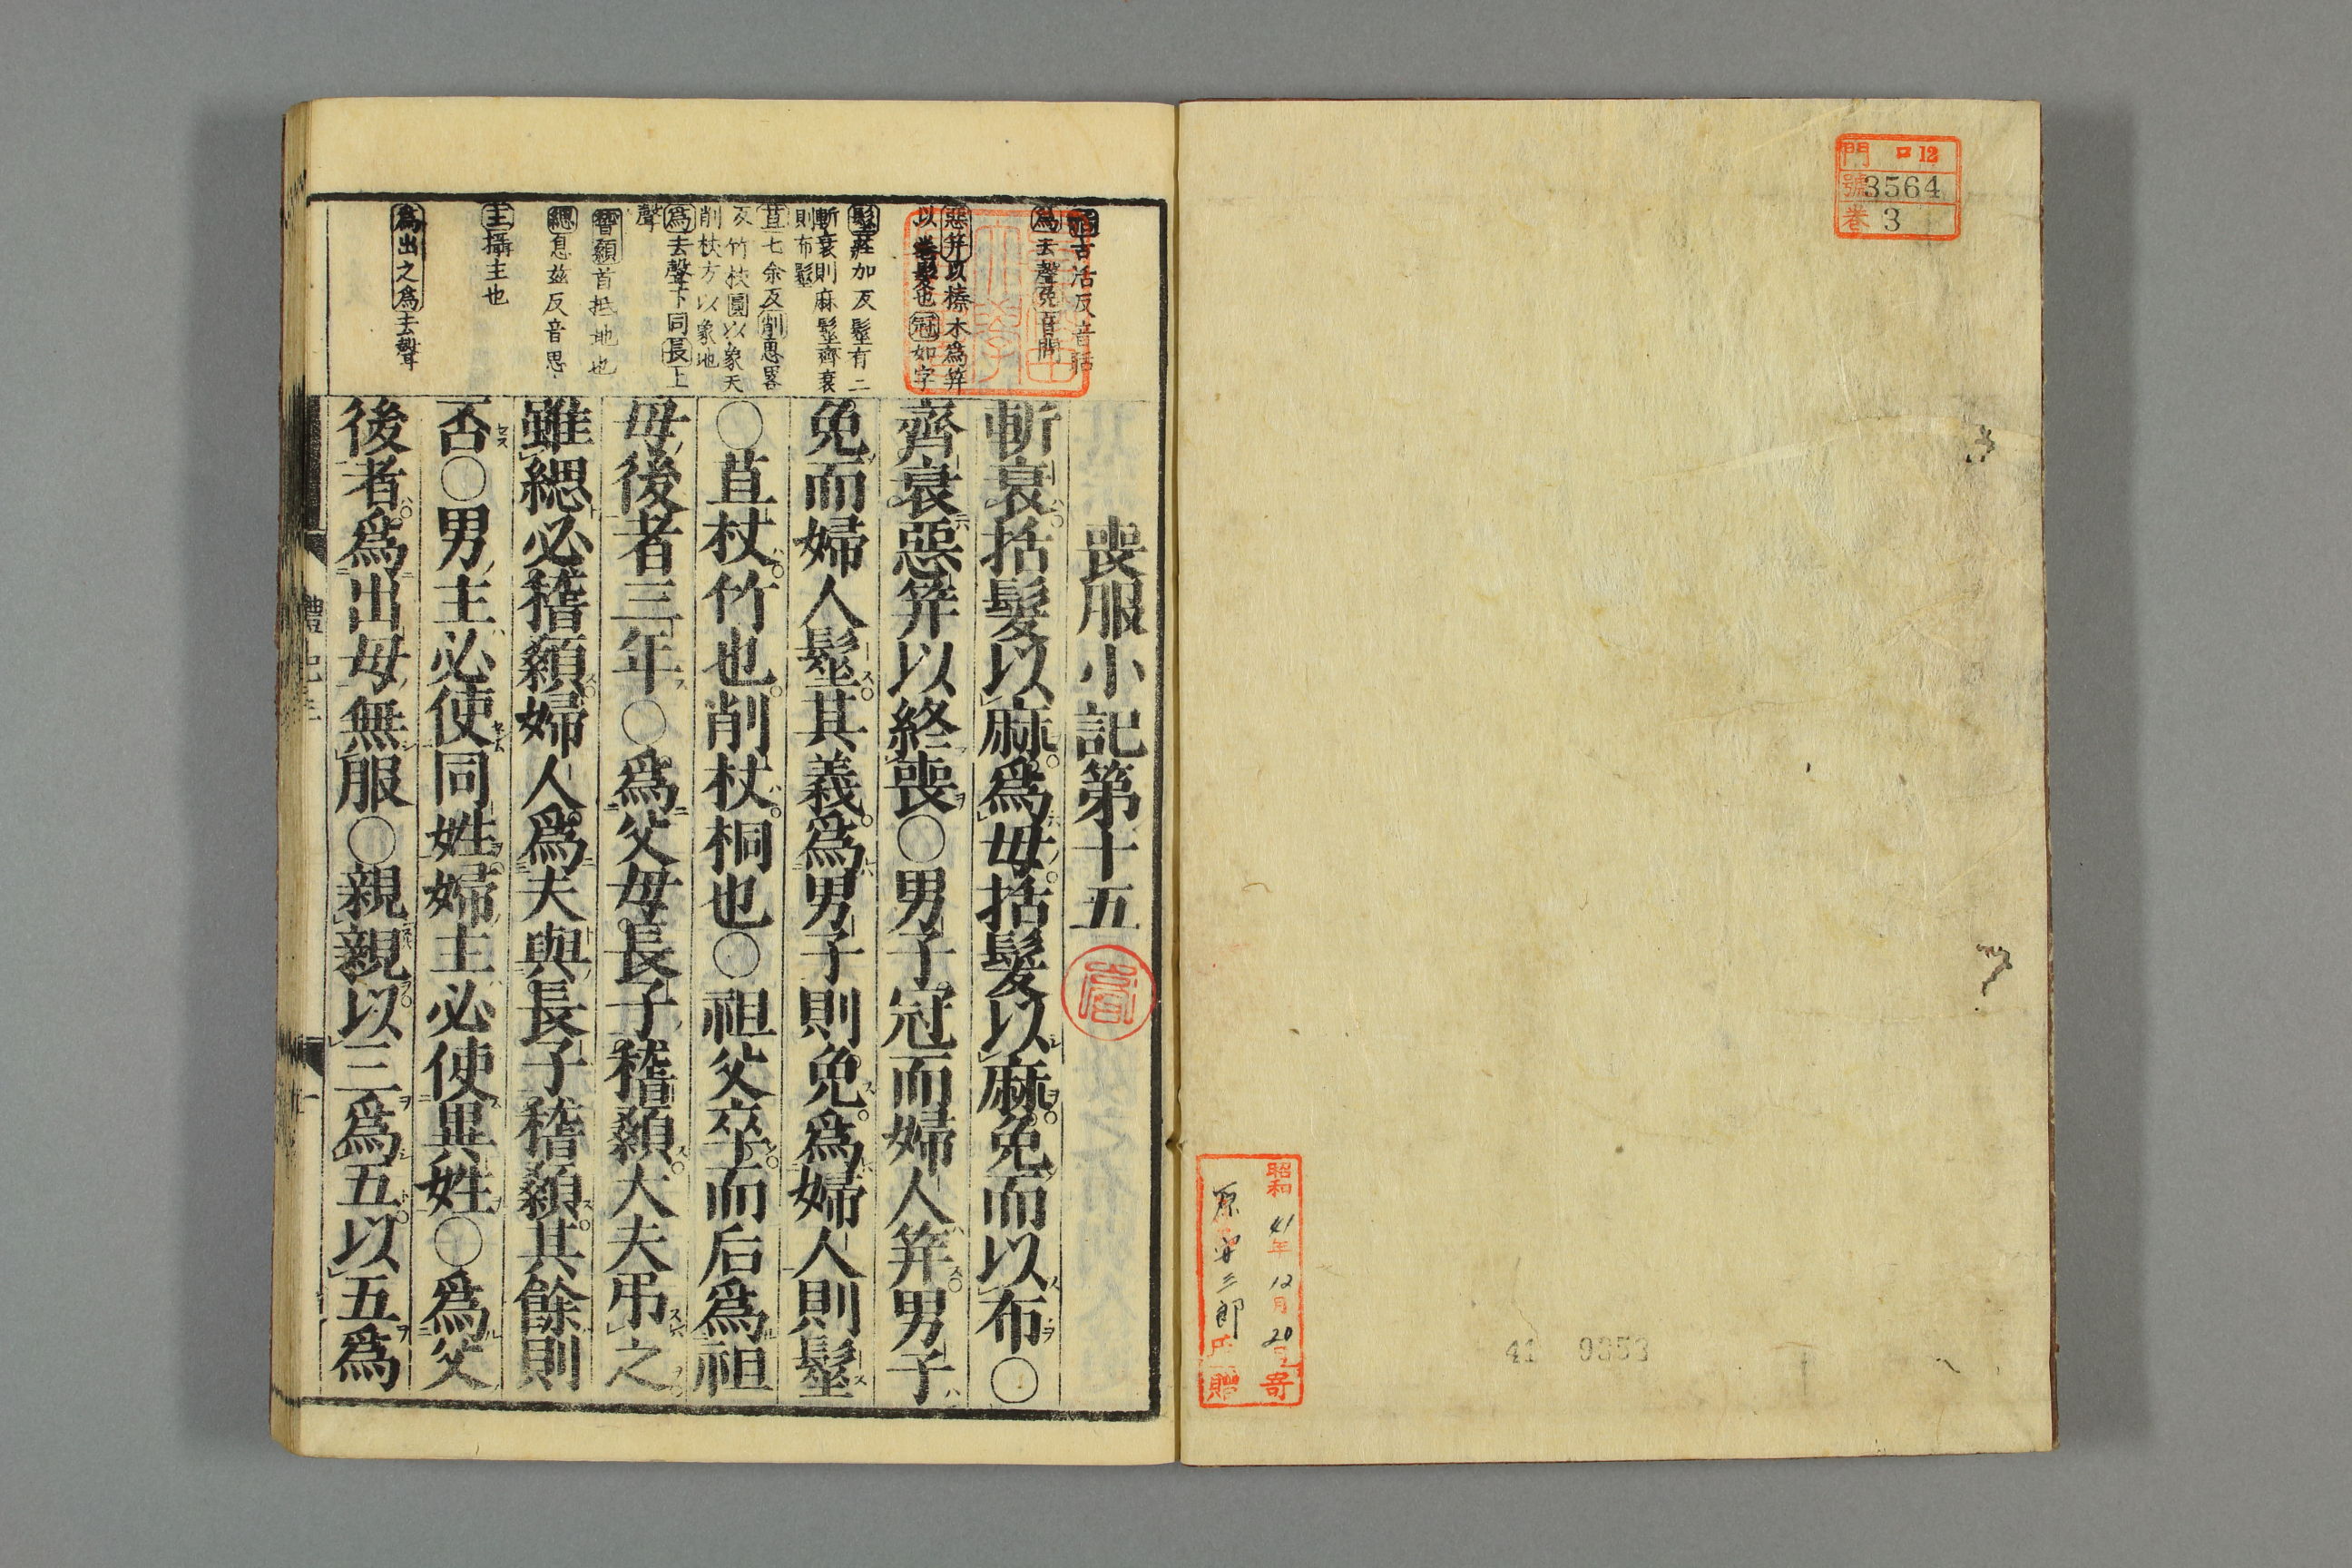 門 ロ12
號 3564
巻 3
昭和41年12月20日寄
原安三郎氏贈
41 9353
喪服小記第十五
斬衰括髮以麻爲母括髮以麻免而以布〇
齊衰惡筓以終喪〇男子冠而婦人筓男子
免而婦人髽其義爲男子則免爲婦人則髽
〇苴杖竹也削杖桐也〇祖父卒而后爲祖
母後者三年〇爲父母長子稽顙大夫弔之
雖緦必稽顙婦人爲夫與長子稽顙其餘則
否〇男主必使同姓婦主必使異姓〇爲父
後者爲出母無服〇親親以三爲五以五爲
括古活反音聒
爲去聲免音問
惡筓以榛木爲筓
以卷髮也冠如字
髽莊加反髽有二
斬衰則麻髽齊衰
則布髽
苴七余反削思畧
反竹杖圓以象天
削杖方以象地
爲去聲下同長上
聲
稽顙首抵地也
緦息玆反音思
主攝主也
爲出之爲去聲
禮記三
一